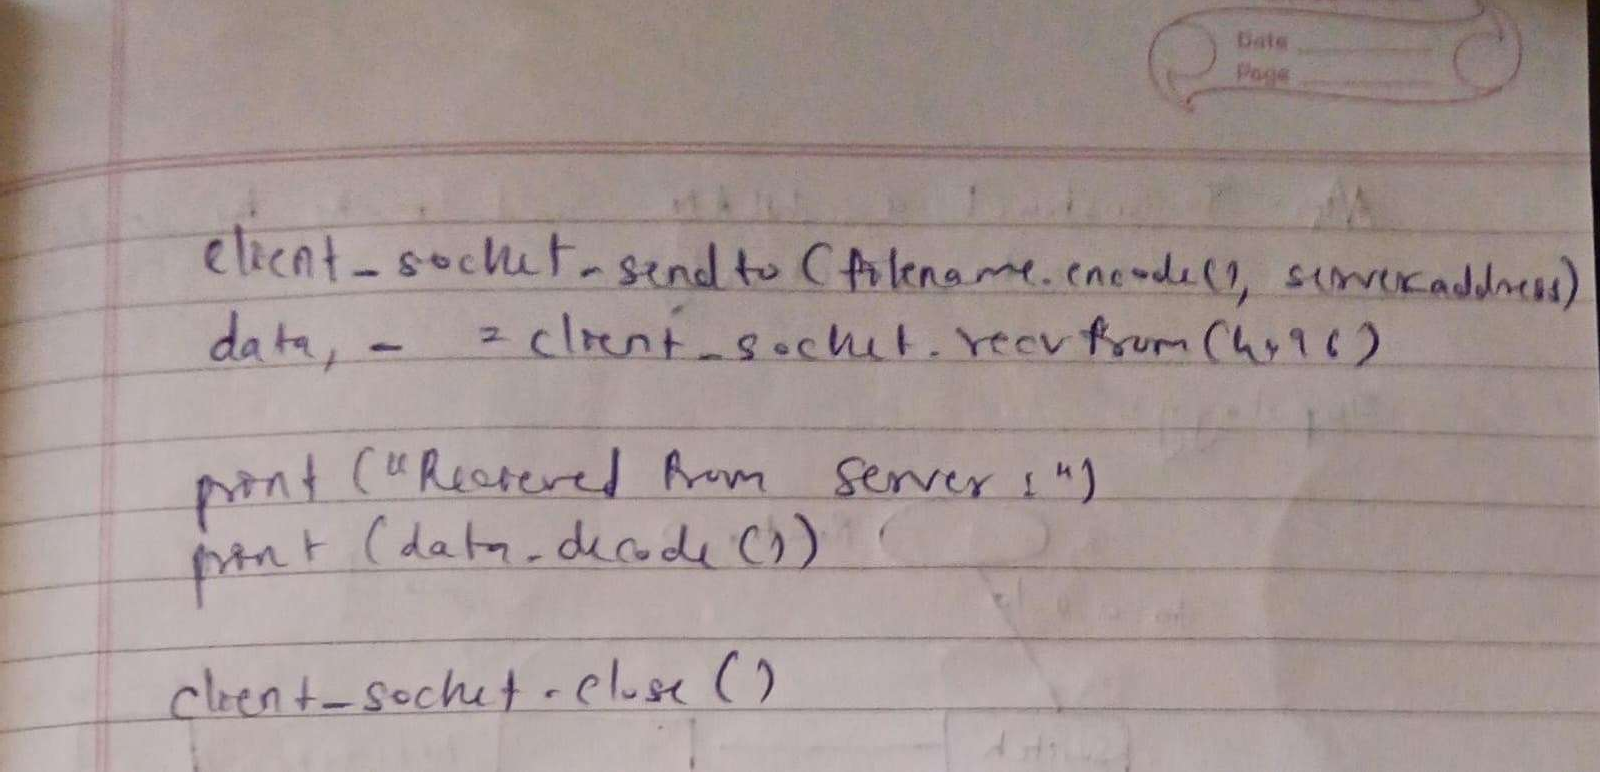 Date
Page
client_socket.sendto (filename.encode(), serveraddress)
data, _ = client_socket.recvfrom (4096)
print ("Received from server :")
print (data.decode ())
client_socket.close ()